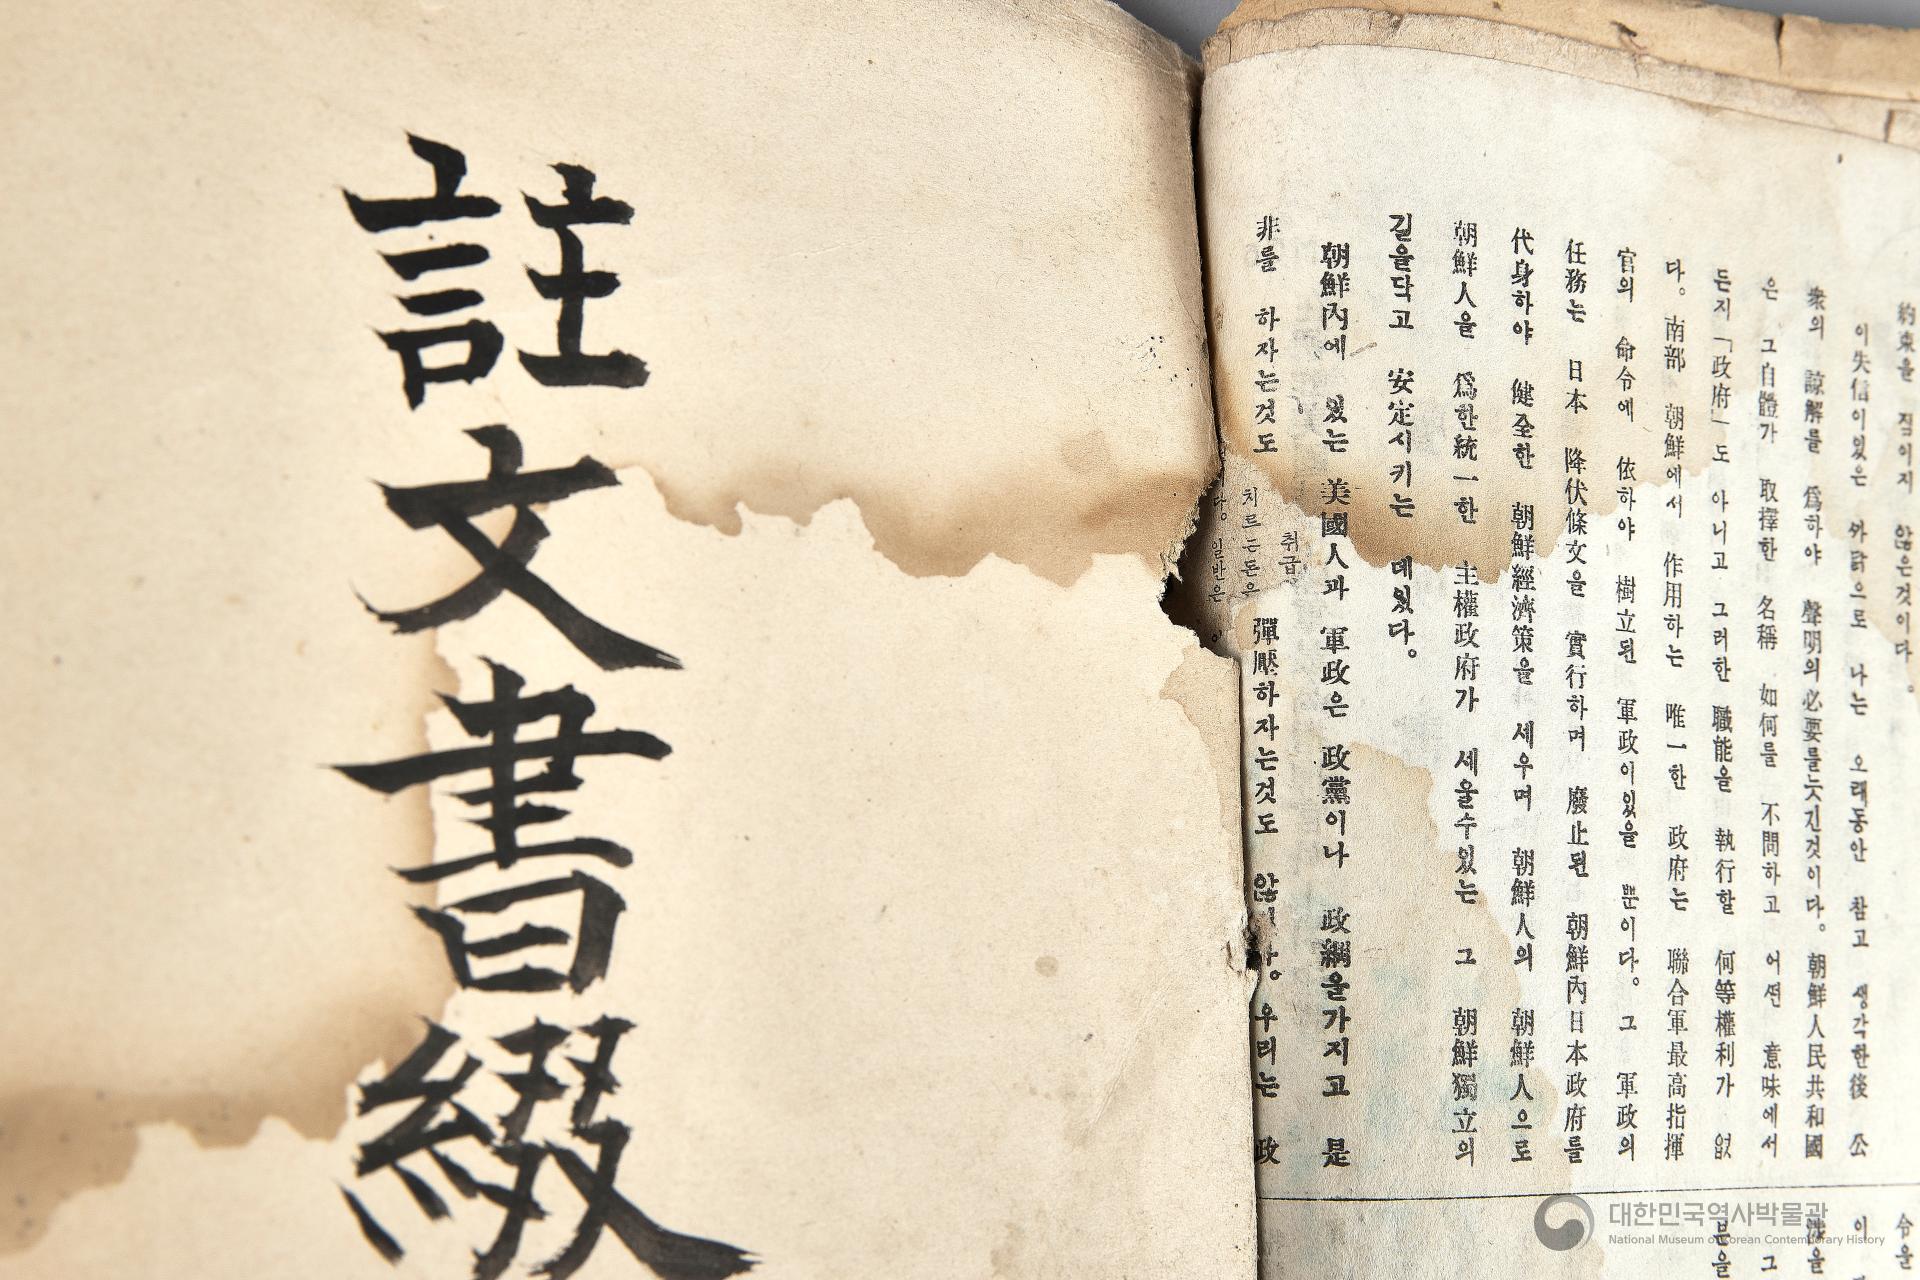 註文書綴
約束을 직이지 않은것이다。
이失信이있은 까닭으로 나는 오래동안 참고 생각한後 公
衆의 諒解를 爲하야 聲明의必要를늣긴것이다。朝鮮人民共和國
은 그自體가 取擇한 名稱 如何를 不問하고 어떤 意味에서
든지「政府」도 아니고 그러한 職能을 執行할 何等權利가 없
다。南部 朝鮮에서 作用하는 唯一한 政府는 聯合軍最高指揮
官의 命令에 依하야 樹立된 軍政이있을 뿐이다。그 軍政의
任務는 日本 降伏條文을 實行하며 廢止된 朝鮮內日本政府를
代身하야 健全한 朝鮮經濟策을 세우며 朝鮮人의 朝鮮人으로
朝鮮人을 爲한統一한 主權政府가 세울수있는 그 朝鮮獨立의
길을닥고 安定시키는 데있다。
朝鮮內에 있는 美國人과 軍政은 政黨이나 政綱을가지고 是
非를 하자는것도 彈壓하자는것도 우리는 政
취급
치르는돈으
다。일반은 이
合을
이
涉을
그
본을
대한민국역사박물관
National Museum of Korean Contemporary History